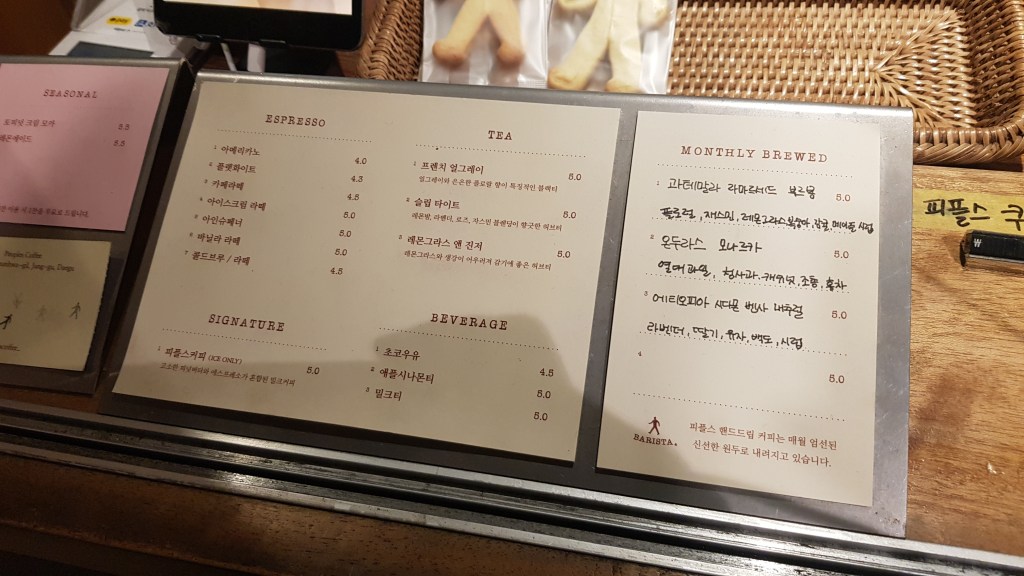 SEASONAL
토피넛 크림 모카 5.5
레몬에이드 5.5
Peoples Coffee
ESPRESSO
1 아메리카노 4.0
2 플랫화이트 4.3
3 카페라떼 4.5
4 아이스크림 라떼 5.0
5 아인슈페너 5.0
6 바닐라 라떼 5.0
7 콜드브루 / 라떼 4.5
SIGNATURE
1 피플스커피 (ICE ONLY) 5.0
고소한 피넛버터와 에스프레소가 혼합된 밀크커피
TEA
1 프렌치 얼그레이 5.0
얼그레이와 은은한 홍로발 향이 특징적인 블랙티
2 슬립 타이트 5.0
레몬밤, 라벤더, 로즈, 자스민 블렌딩이 향긋한 허브티
3 레몬그라스 앤 진저 5.0
레몬그라스와 생강이 어우러져 감기에 좋은 허브티
BEVERAGE
1 초코우유 4.5
2 애플시나몬티 5.0
3 밀크티 5.0
MONTHLY BREWED
1 과테말라 라마르세드 부르봉 5.0
플로럴, 재스민, 레몬그라스, 복숭아, 살구, 메이플 시럽
2 온두라스 모나르카 5.0
열대과일, 청사과, 캐쉬넛, 조청, 홍차
3 에티오피아 시다모 벤사 내추럴 5.0
라벤더, 딸기, 유자, 백도, 시럽
4 5.0
BARISTA.
피플스 핸드드립 커피는 매월 엄선된
신선한 원두로 내려지고 있습니다.
피플스 쿠
₩